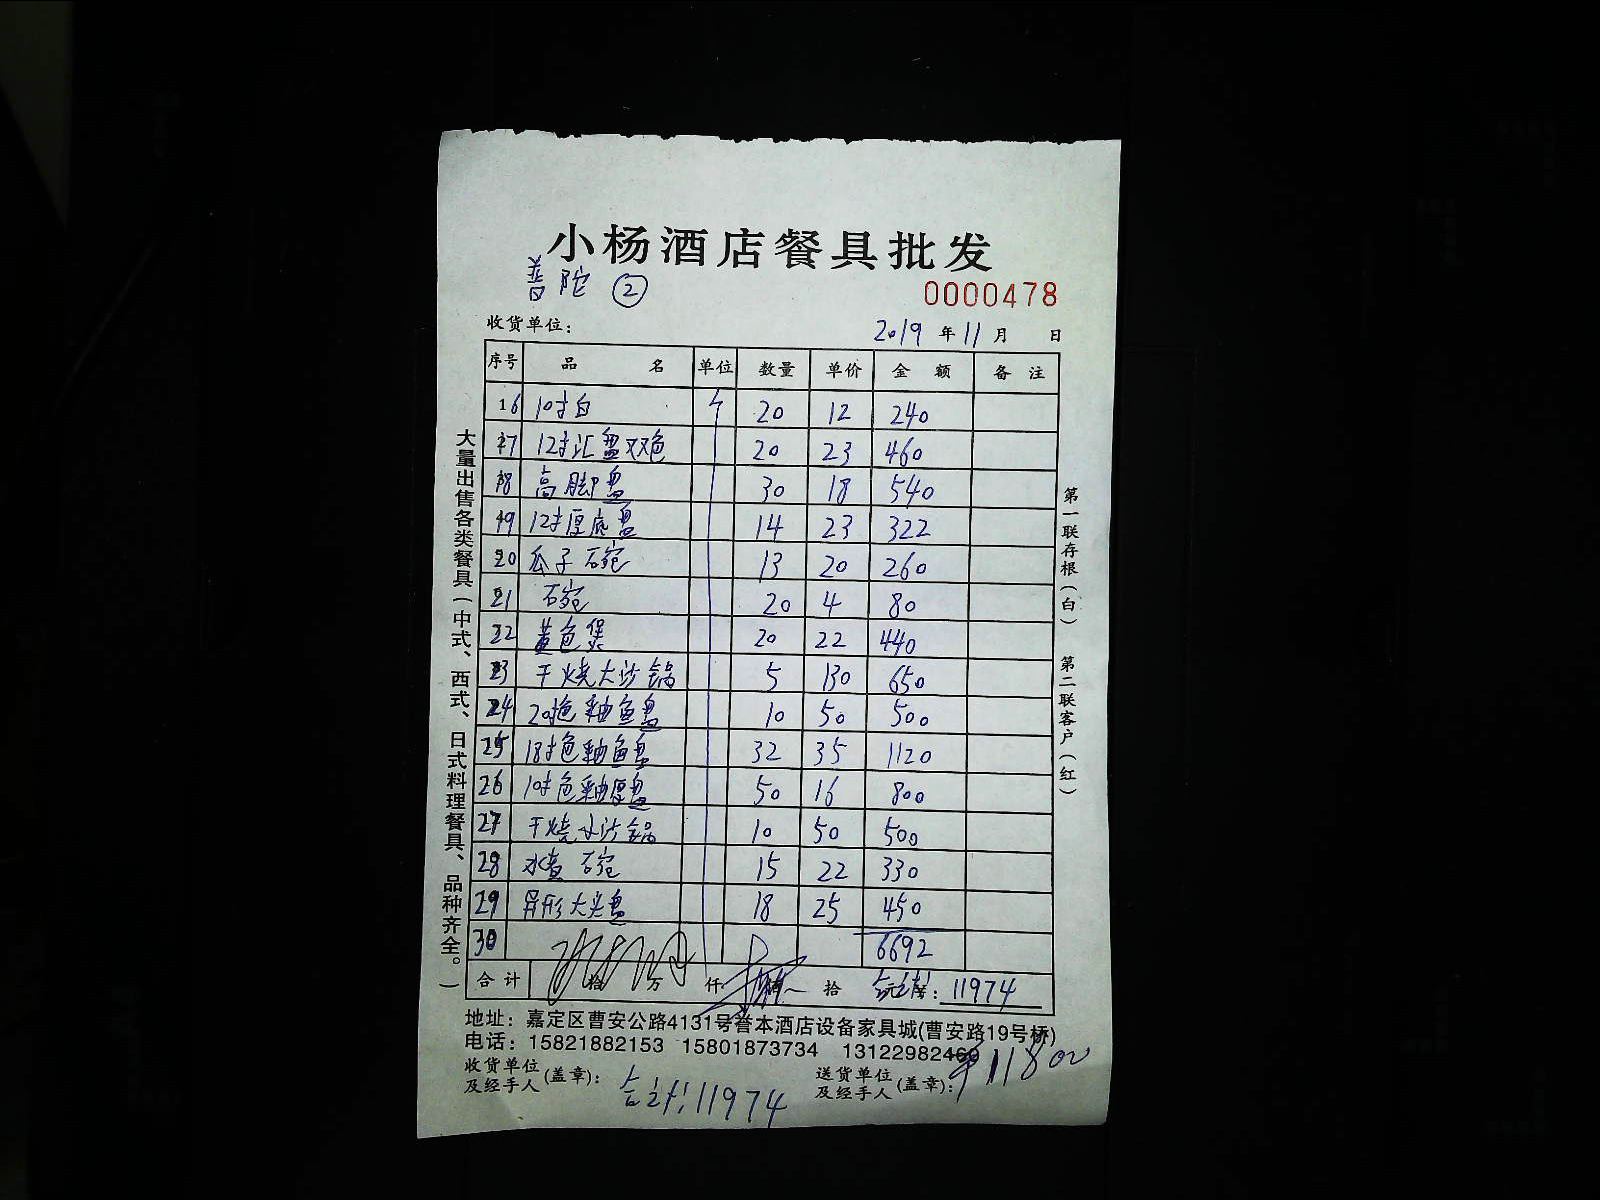 小杨酒店餐具批发
普陀 ②
0000478
收货单位： 2019 年 11 月 日
序号 品 名 单位 数量 单价 金 额 备 注
16 10寸白 个 20 12 240
17 12寸汇盘双色 20 23 460
18 高脚盘 30 18 540
19 12寸厚底盘 14 23 322
20 瓜子石碗 13 20 260
21 石碗 20 4 80
22 黄色煲 20 22 440
23 干烧大沙锅 5 130 650
24 20寸色釉鱼盘 10 50 500
25 18寸色釉鱼盘 32 35 1120
26 10寸色釉厚盘 50 16 800
27 干烧小沙锅 10 50 500
28 水煮石碗 15 22 330
29 异形大头盘 18 25 450
30 6692
合 计 拾 万 仟 拾 合计: 11974
地址：嘉定区曹安公路4131号誉本酒店设备家具城(曹安路19号桥)
电话：15821882153 15801873734 13122982460
收货单位及经手人(盖章)： 合计: 11974
送货单位及经手人(盖章)： 11800
大量出售各类餐具(中式、西式、日式料理餐具、品种齐全。)
第一联存根(白) 第二联客户(红)